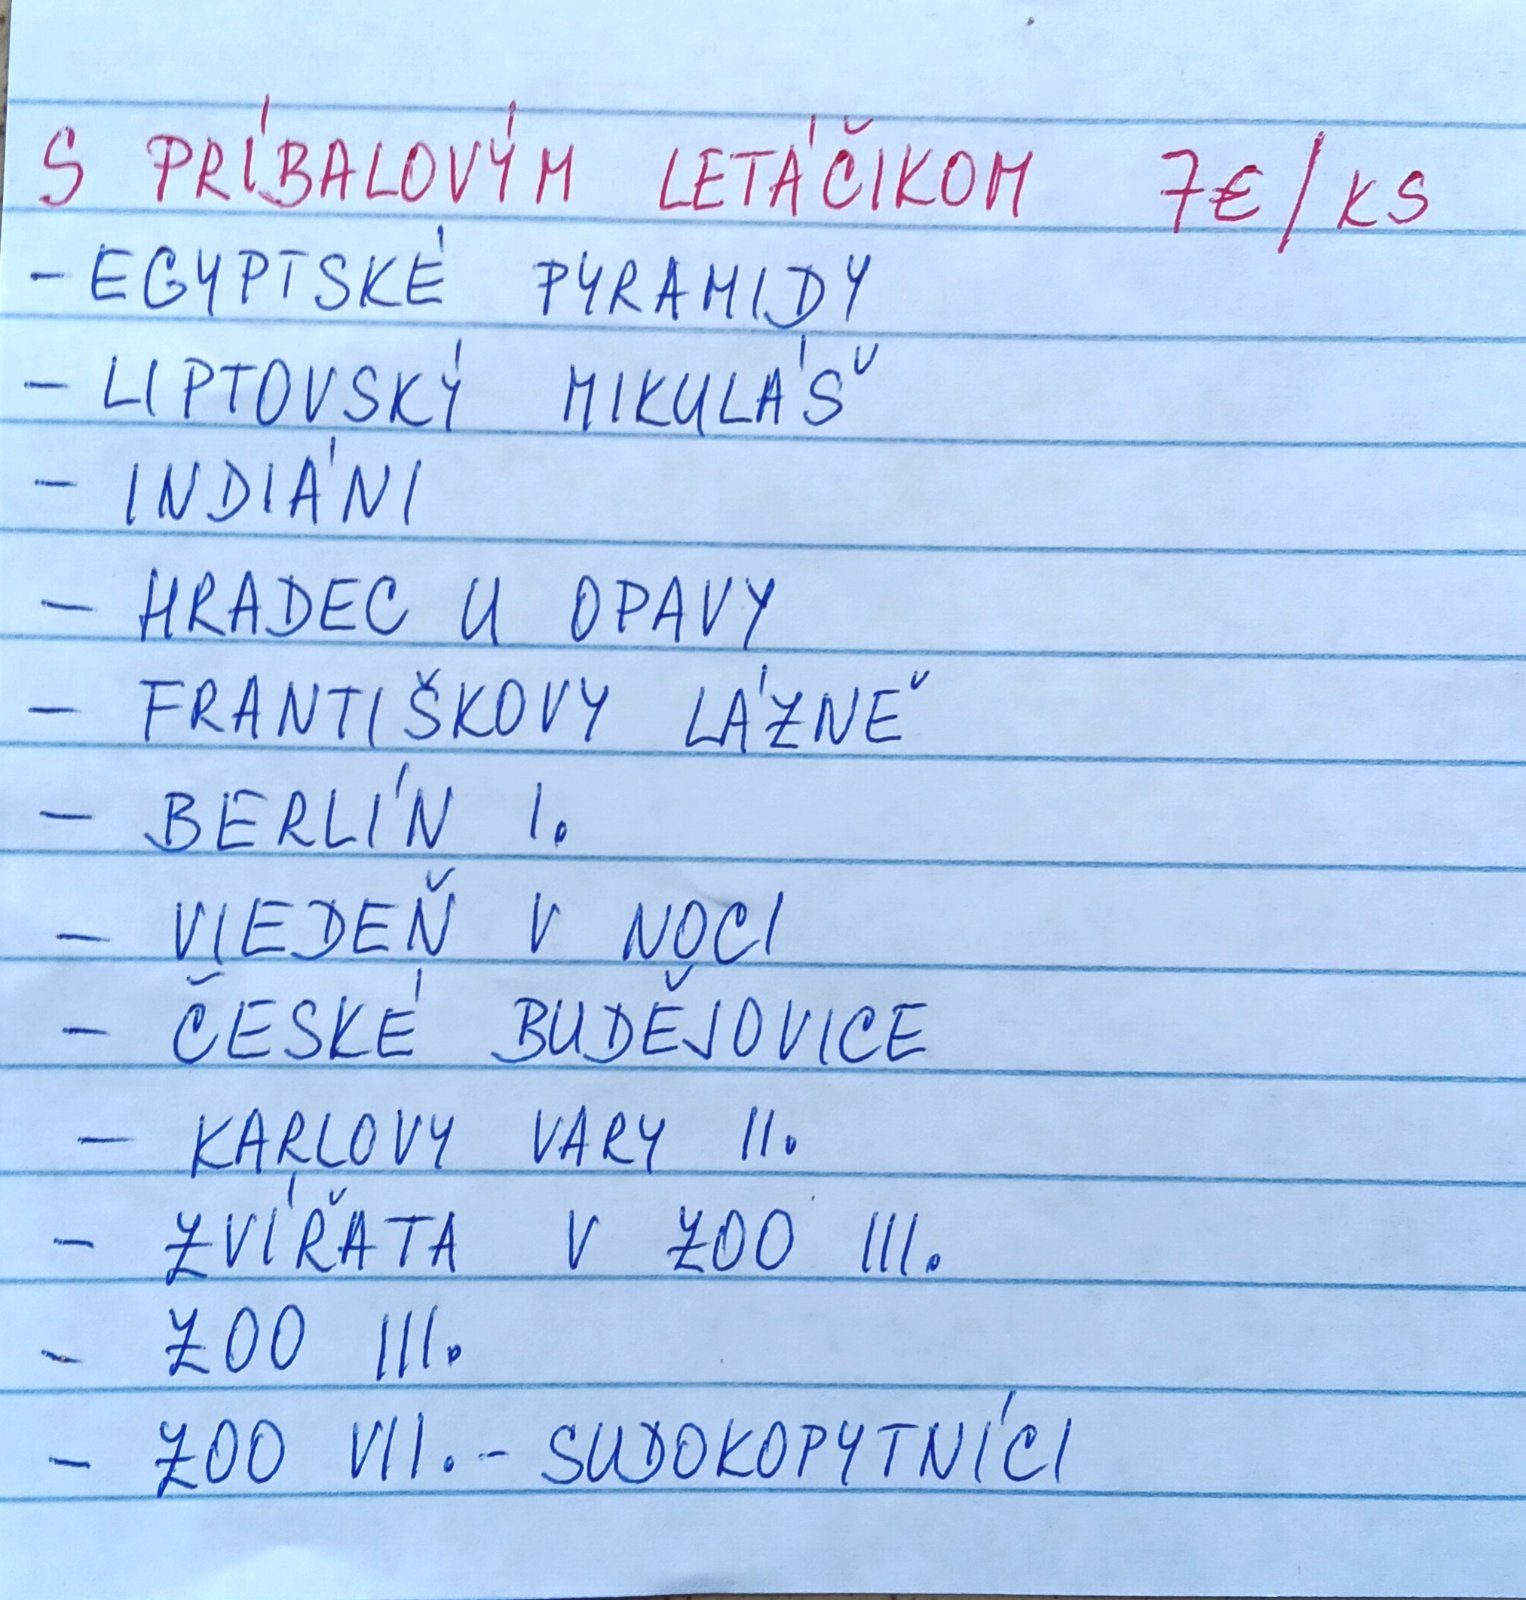 S PRÍBALOVÝM LETÁČIKOM 7€/KS
- EGYPTSKÉ PYRAMIDY
- LIPTOVSKÝ MIKULÁŠ
- INDIÁNI
- HRADEC U OPAVY
- FRANTIŠKOVY LÁZNĚ
- BERLÍN I.
- VIEDEŇ V NOCI
- ČESKÉ BUDĚJOVICE
- KARLOVY VARY II.
- ZVÍŘATA V ZOO III.
- ZOO III.
- ZOO VII. - SUDOKOPYTNÍCI